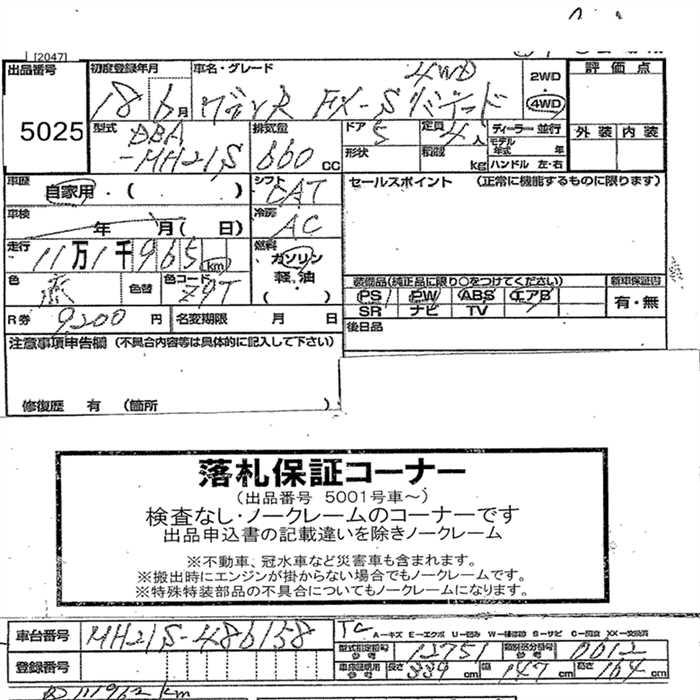 [2047]
出品番号 初度登録年月 車名・グレード 2WD 評価点
5025
18 6月 FX-S 4WD 4WD
型式 DBA-MH21S 排気量 660 CC ドア 5 定員 4人 ディーラー 並行 外装 内装
形状 積載 kg モデル年式 年
ハンドル 左・右
車歴 自家用・( ) シフト CAT セールスポイント (正常に機能するものに限ります)
車検 年 月( 日) 冷房 AC
走行 11万1千965 km 燃料 ガソリン 軽.油 ( )
色 色替 色コード Z9T 装備品(純正品に限り○をつけてください) 新車保証書
PS PW ABS エアB 有・無
SR ナビ TV
R券 9,200 円 名変期限 月 日 後日品
注意事項申告欄 (不具合内容等は具体的に記入して下さい)
修復歴 有 (箇所 )
落札保証コーナー
(出品番号 5001号車~)
検査なし・ノークレームのコーナーです
出品申込書の記載違いを除きノークレーム
※不動車、冠水車など災害車も含まれます。
※搬出時にエンジンが掛からない場合でもノークレームです。
※特殊特装部品の不具合についてもノークレームになります。
車台番号 MH21S-486158
A-キズ E-エクボ U-凹み W-補修跡 S-サビ C-腐食 XX-交換済
型式指定番号 参考 12751 類別区分番号 参考 0012
登録番号 車庫証明用 参考 長さ 339 cm 幅 147 cm 高さ 164 cm
111962 km